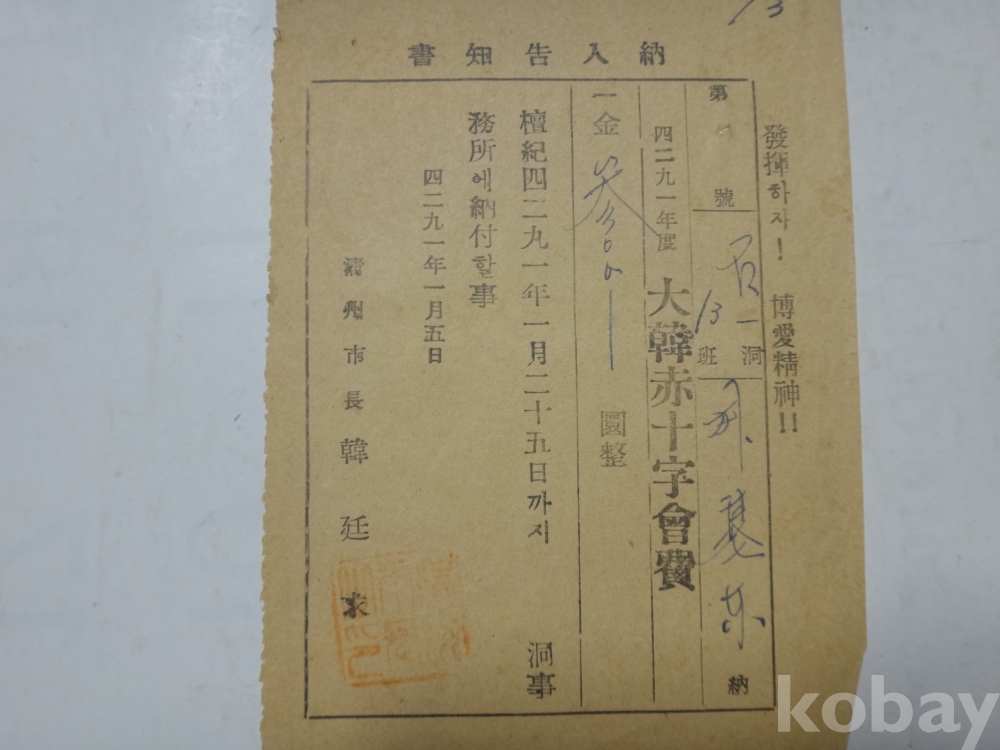 納入告知書
發揮하자! 博愛精神!!
第 號 一洞 13班 納
四二九一年度 大韓赤十字會費
一金 參 圜整
檀紀四二九一年一月二十五日까지 洞事
務所에納付할事
四二九一年一月五日
淸州市長 韓廷
13
kobay